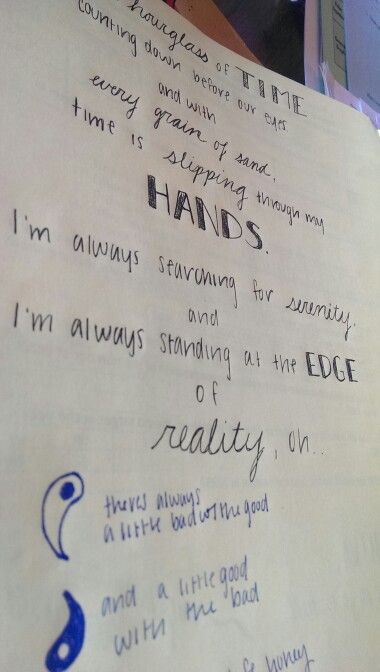 hourglass of TIME
counting down before our eyes
and with
every grain of sand,
time is slipping through my
HANDS.
I'm always searching for serenity,
and
I'm always standing at the EDGE
of
reality, oh..
theres always
a little bad w/ the good
and a little good
with the bad
honey